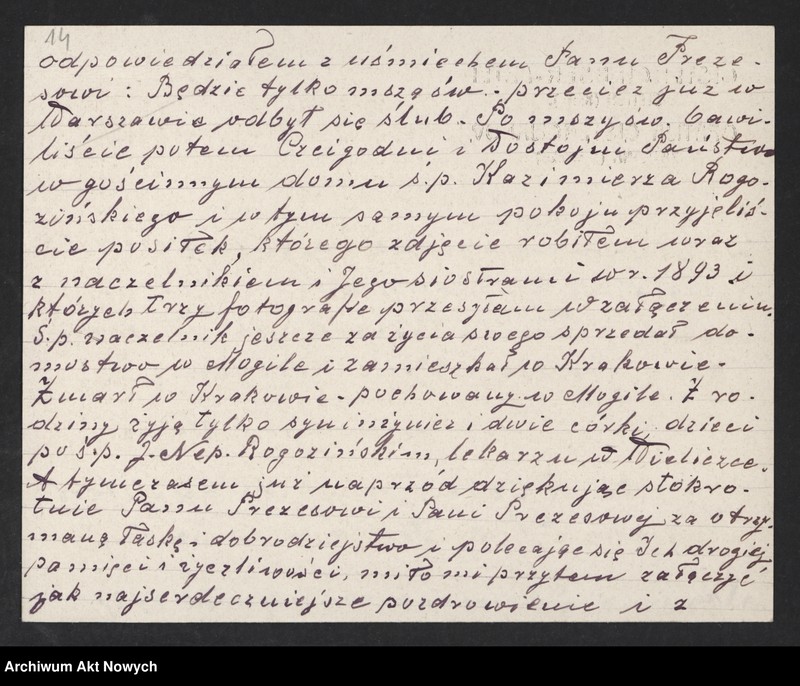 14
odpowiedziałem z uśmiechem Panu Preze-
sowi: Będzie tylko msza św. - przecież już w
Warszawie odbył się ślub. Po mszy św. bawi-
liście potem Czcigodni i Dostojni Państwo
w gościnnym domu ś.p. Kazimierza Rogo-
zińskiego i w tym samym pokoju przyjęliś-
cie posiłek, którego zdjęcie robiłem wraz
z naczelnikiem i Jego siostrami w r. 1893 i
których trzy fotografie przesyłam w załączeniu.
Ś.p. naczelnik jeszcze za życia swego sprzedał do-
mostwo w Mogile i zamieszkał w Krakowie.
Zmarł w Krakowie - pochowany w Mogile. Z ro-
dziny żyją tylko syn inżynier i dwie córki, dzieci
po ś.p. J. Nep. Rogozińskim, lekarzu w Wieliczce.
A tymczasem już naprzód dziękując stokro-
tnie Panu Prezesowi i Pani Prezesowej za otrzy-
maną łaskę i dobrodziejstwo i polecając się Ich drogiej
pamięci i życzliwości, miło mi przytem załączyć
jak najserdeczniejsze pozdrowienie i z
Archiwum Akt Nowych